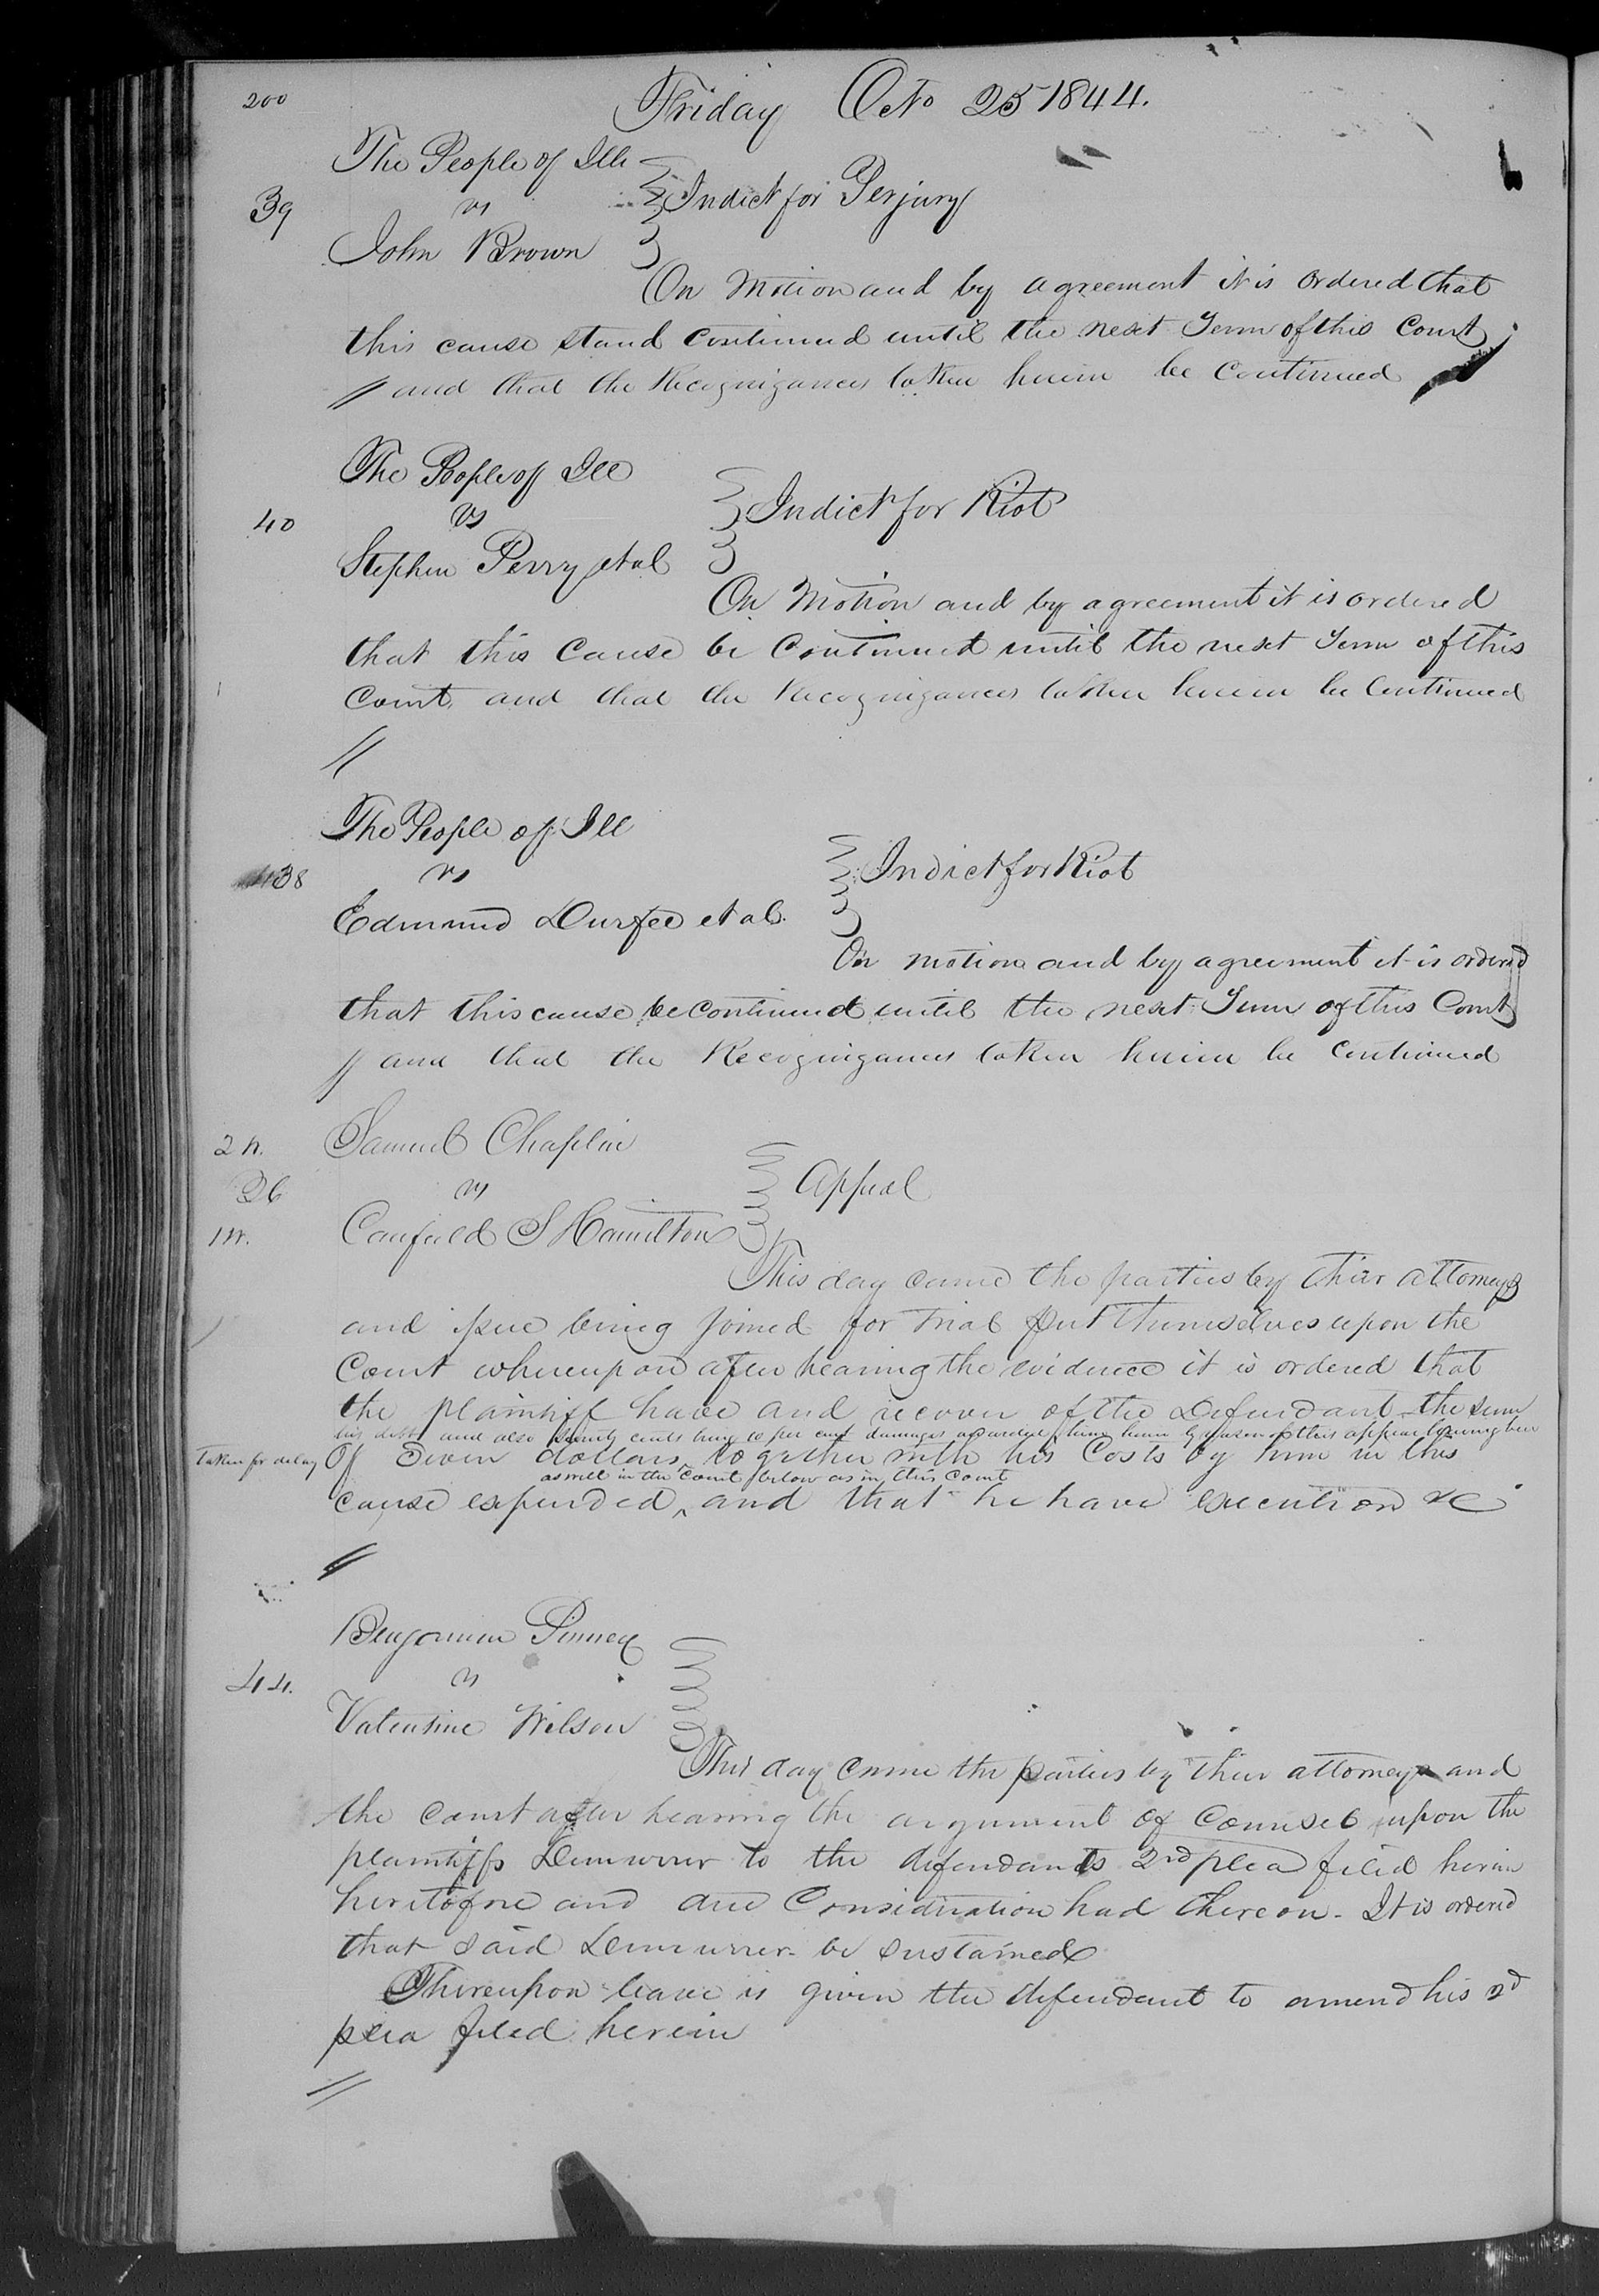 200
Friday Octo 25 1844.
The People of Ills
39 vs Indict for Perjury
John Brown
On Motion and by agreement it is ordered that
this cause stand continued until the next Term of this Court
// and that the Recognizances taken herein be continued
The People of Ill
40 vs Indict for Riot
Stephen Perry et al
On Motion and by agreement it is ordered
that this cause be continued until the next Term of this
Court and that the Recognizances taken herein be continued
//
The People of Ill
38 vs Indict for Riot
Edmund Durfee et al.
On motion and by agreement it is ordered
that this cause be continued until the next Term of this Court
// and that the Recognizances taken herein be continued
Samuel Chaplin
26 vs Appeal
Canfield S Hamilton
This day came the parties by their attorneys
and issue being joined for trial put themselves upon the
Court whereupon after hearing the evidence it is ordered that
the plaintiff have and recover of the Defendant the sum
his debt and also Seventy cents being 10 per cent damages awarded him herein by reason of this appeal having been
taken for delay Of Seven dollars together with his Costs by him in this
as well in the Court below as in this Court
cause expended, and that he have execution &c
//
Benjamin Pinney
44. vs
Valentine Wilson
This day came the parties by their attorneys and
the court after hearing the argument of Counsel upon the
plaintiffs Demurrer to the defendants 2nd plea filed herein
heretofore and due Consideration had thereon - It is ordered
that said Demurrer be sustained
Thereupon leave is given the defendant to amend his 2d
plea filed herein
//